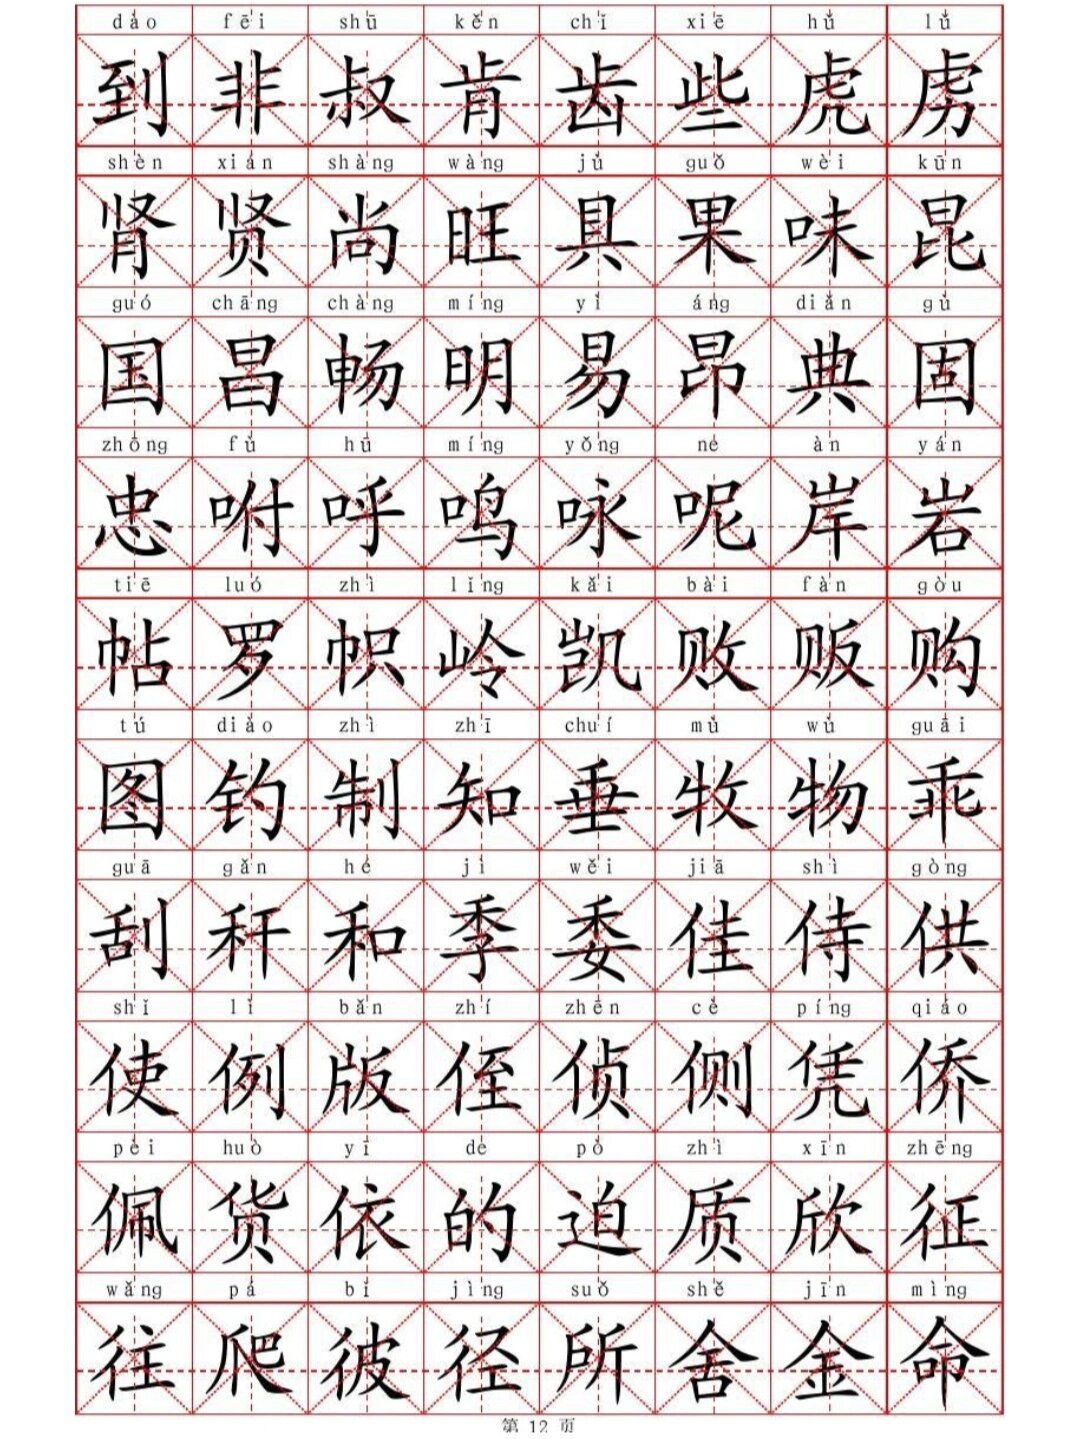 dào fēi shū kěn chǐ xiē hǔ lǔ
到 非 叔 肯 齿 些 虎 虏
shèn xián shàng wàng jù guǒ wèi kūn
肾 贤 尚 旺 具 果 味 昆
guó chāng chàng míng yì áng diǎn gù
国 昌 畅 明 易 昂 典 固
zhōng fù hū míng yǒng né àn yán
忠 咐 呼 鸣 咏 呢 岸 岩
tiē luó zhì lǐng kǎi bài fàn gòu
帖 罗 帜 岭 凯 败 贩 购
tú diào zhì zhī chuí mù wù guāi
图 钓 制 知 垂 牧 物 乖
guā gǎn hé jì wěi jiā shì gòng
刮 秆 和 季 委 佳 侍 供
shǐ lì bǎn zhí zhēn cè píng qiáo
使 例 版 侄 侦 侧 凭 侨
pèi huò yī de pò zhì xīn zhēng
佩 货 依 的 迫 质 欣 征
wǎng pá bǐ jìng suǒ shě jīn mìng
往 爬 彼 径 所 舍 金 命
第 12 页